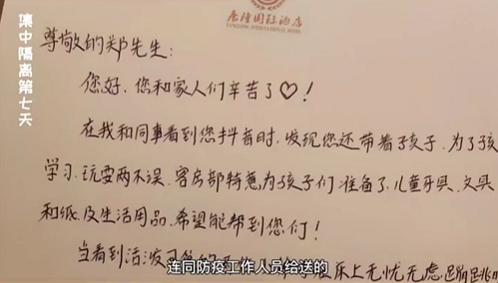 唐隆国际酒店
TANGLONG INTERNATIONAL HOTEL
集中隔离第七天
尊敬的郑先生：
您好，您和家人们辛苦了♡！
在我和同事看到您抖音时，发现您还带着孩子，为了孩
学习、玩耍两不误，客房部特意为孩子们准备了，儿童牙具、文具
和纸，及生活用品，希望能帮到您们！
当看到活泼 乐上无忧无虑
连同防疫工作人员给送的